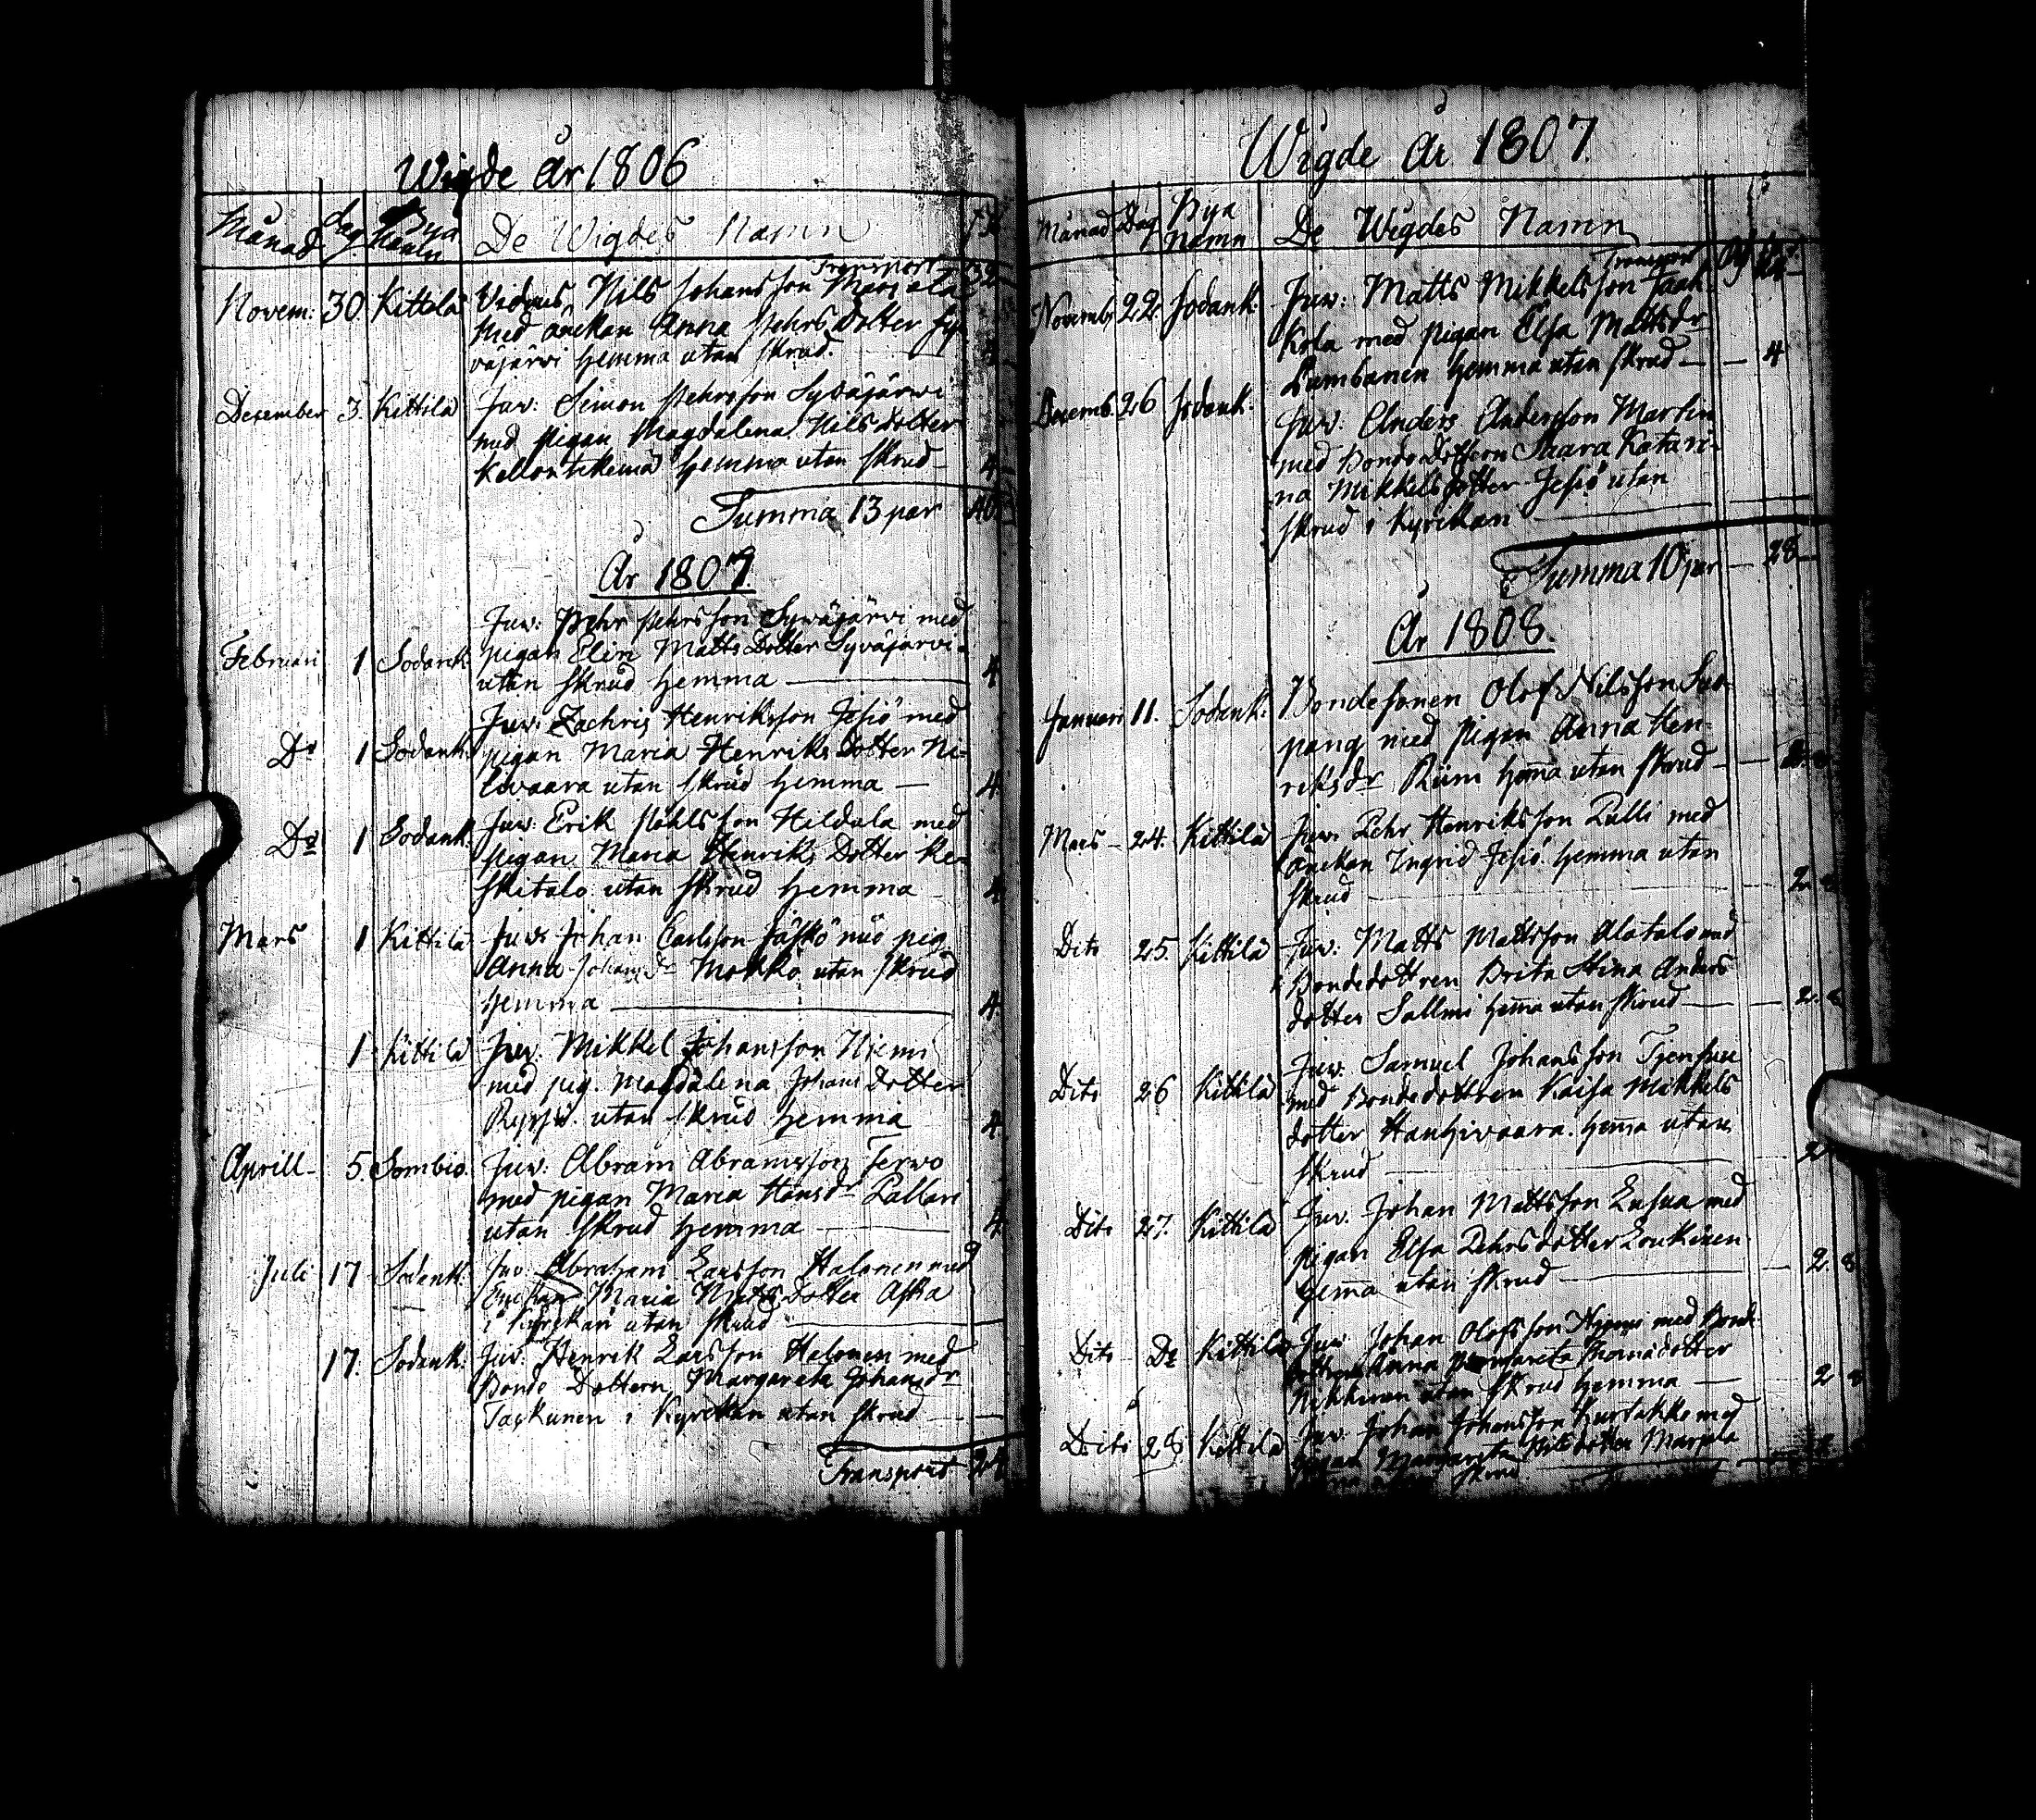 Wigde år 1806
Månad Dag Bya Namn De Wigdes Namn
Transport 32
Novem: 30 Kittilä Viduus Nils Johansson Marjala
med änckan Anna Pehrs Dotter Sy-
väjärvi hemma utan skrud. 4
Desember 3. Kittilä Juv: Simon Pehrsson Syväjärvi
med pigan Magdalena Nils dotter
hemma utan skrud 4
Summa 13 par 40
År 1807
Februari 1 Sodank. Juv: Pehr Pehrsson Syväjärvi med
pigan Elin Matts Dotter Syväjärvi
utan skrud hemma 4
Do 1 Sodank. Juv: Zachris Henriksson Jesiö med
pigan Maria Henriks Dotter Ni-
livaara utan skrud hemma 4
Do 1 Sodank. Juv: Erik Påhlsson Hildula med
pigan Maria Henriks Dotter Ke-
skitalo utan skrud hemma 4
Mars 1 Kittilä Juv: Johan Carlsson Jäskö med pig.
Anna Johans Dr Mokko utan skrud
hemma 4
1 Kittilä Juv: Mikkel Johansson Niemi
med pig. Magdalena Johans Dotter
utan skrud hemma 4
Aprill 5. Sombio. Juv: Abram Abramsson Terwo
med pigan Maria Hansdr Pallari
utan skrud hemma 4
Juli 17 Sodank. Juv: Abraham Larsson Halonen med
Enckan Maria Matts Dotter Aska
i Kyrckan utan skrud
17. Sodank. Juv: Henrik Larsson Halonen med
Bonde Dottern Margareta Johansdr
Taskunen i Kyrckan utan skrud
Transport 24
Wigde År 1807.
Månad Dag Bya namn De Wigdes Namn
Transport 24
Novemb. 22. Sodank: Juv: Matts Mikkelsson Jaak-
kola med pigan Elsa Mattsdr
Kumbanen hemma utan skrud 4
Decemb. 26 Sodank: Juv: Anders Andersson Martin
med Bonde Dottern Saara Katari-
na Mikkels dotter Jesiö utan
skrud i Kyrckan
Summa 10 par 28
År 1808.
Januari 11. Sodank: Bondesonen Olof Nilsson Sar-
pang med pigan Anna Hen-
riksdr Riim hema utan skrud 2. 8
Mars 24. Kittilä Juv: Pehr Henriksson Palli med
änckan Ingrid Jesiö hemma utan
skrud 2. 8
Dito 25. Kittilä Juv: Matts Mattsson Alatalo med
Bondedottren Brita Stina Anders
dotter Sallmi hema utan skrud 2. 8
Dito 26 Kittilä Juv: Samuel Johansson
med Bondedottren Kaisa Mikkels
dotter Hanhivaara. hema utan
skrud 2
Dito 27. Kittilä Juv. Johan Mattsson med
pigan Elsa Pehrs dotter Loukinen
hema utan skrud 2 8
Dito Do Kittilä Juv. Johan Olofsson Niemi med Bond-
dottren Anna Margareta Thomadotter
utan skrud hemma 2 8
Dito 28. Kittilä Juv. Johan Johansson Kurtakko med
pigan Margareta Nils dotter Marjala
skrud 2